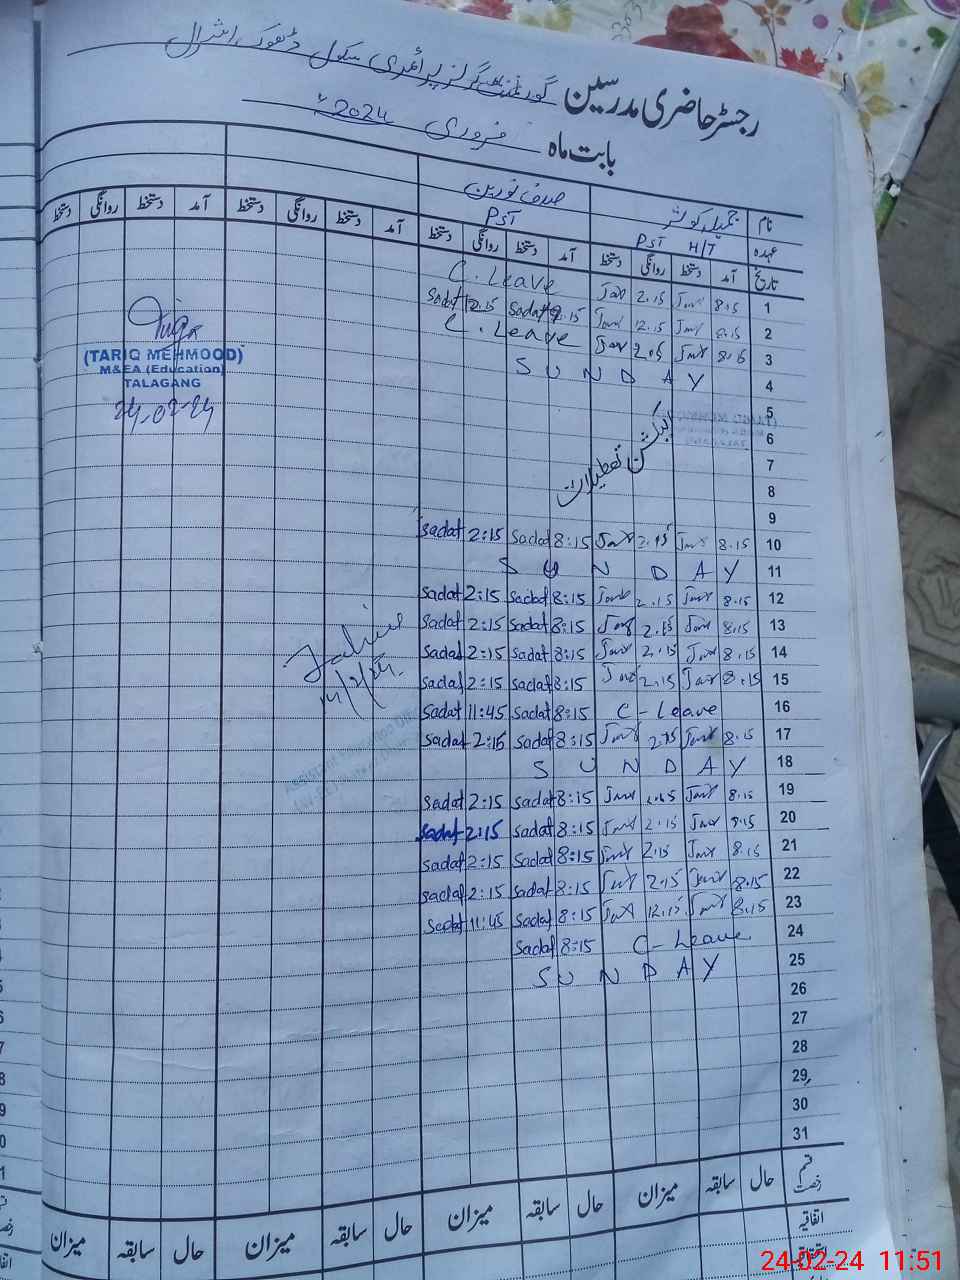 رجسٹر حاضری مدرسین گورنمنٹ گرلز پرائمری سکول ڈھوک
بابت ماہ فروری 2024ء
نام جمیلہ کوثر صدف نورین
عہدہ PST H/T PST
تاریخ آمد دستخط روانگی دستخط آمد دستخط روانگی دستخط آمد دستخط روانگی دستخط آمد دستخط روانگی دستخط
1 8.15 2.15 C. Leave
2 8.15 12.15 Sadaf 12.15 Sadaf
3 2.15 C. Leave
4 SUNDAY
5
6
7
8
الیکشن تعطیلات
9
10 8.15 2.15 8:15 Sadaf 2:15 Sadaf
11 SUNDAY
12 8.15 2.15 8:15 Sadaf 2:15 Sadaf
13 8.15 2.15 8:15 Sadaf 2:15 Sadaf
14 8.15 2.15 8:15 Sadaf 2:15 Sadaf
15 8.15 2.15 8:15 Sadaf 2:15 Sadaf
16 C-Leave 8:15 Sadaf 11:45 Sadaf
17 8.15 2.15 8:15 Sadaf 2:15 Sadaf
18 SUNDAY
19 8.15 2.15 8:15 Sadaf 2:15 Sadaf
20 8.15 2.15 8:15 Sadaf 2:15 Sadaf
21 8.15 2.15 8:15 Sadaf 2:15 Sadaf
22 8.15 2.15 8:15 Sadaf 2:15 Sadaf
23 8.15 12.15 8:15 Sadaf 11:45 Sadaf
24 C-Leave 8:15 Sadaf
25 SUNDAY
26
27
28
29
30
31
قسم رخصت حال سابقہ میزان حال سابقہ میزان حال سابقہ میزان حال سابقہ میزان
اتفاقیہ
(TARIQ MEHMOOD)
M&EA (Education)
TALAGANG
24-02-24
14/2/24
24-02-24 11:51